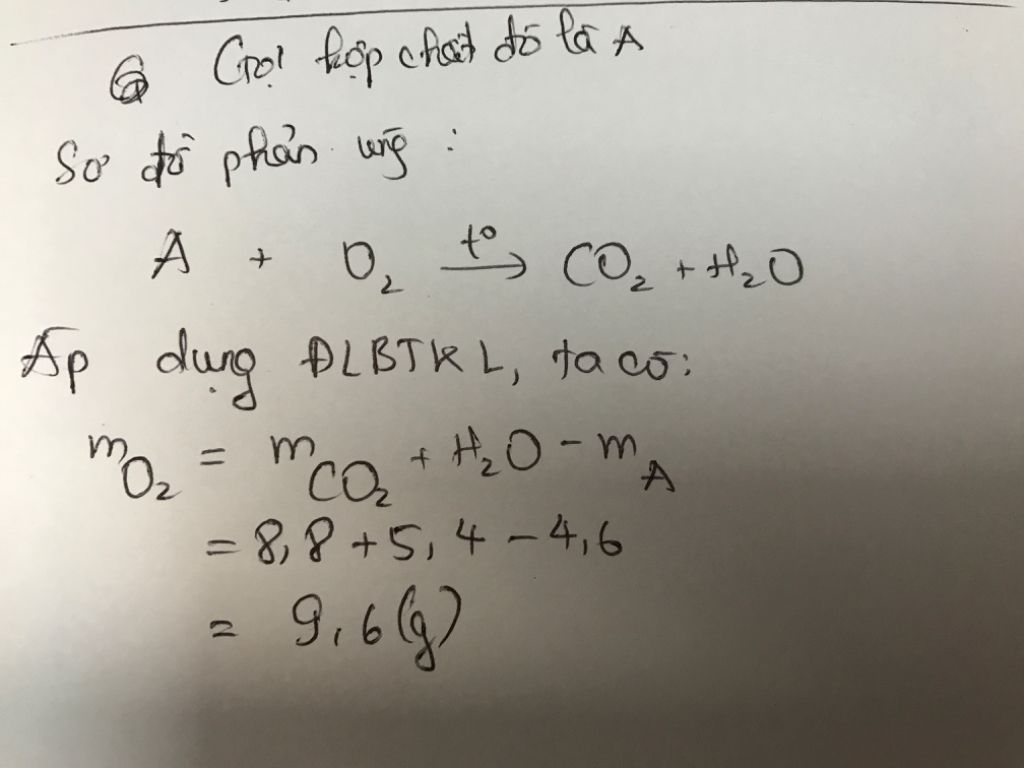 Gọi hợp chất đó là A
Sơ đồ phản ứng :
A + O₂ t° → CO₂ + H₂O
Áp dụng ĐLBTKL, ta có:
mO₂ = mCO₂ + H₂O - mA
= 8,8 + 5,4 - 4,6
= 9,6 (g)